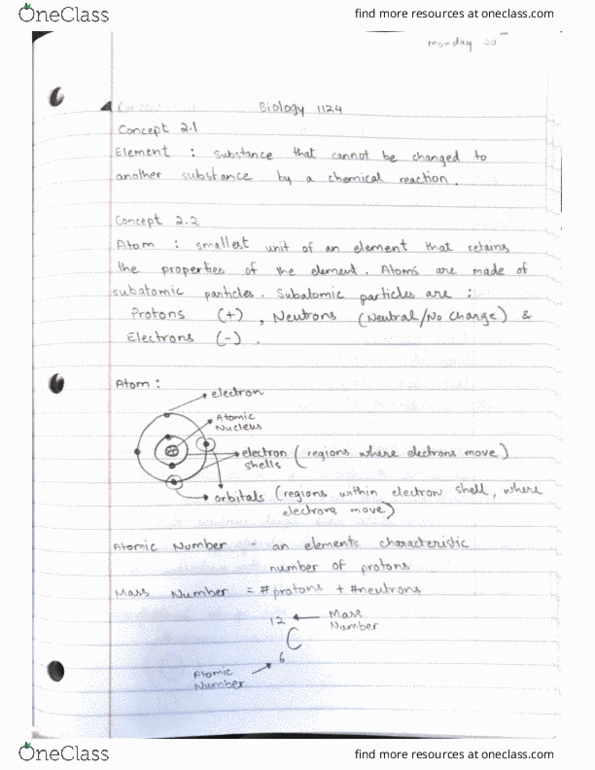 OneClass
find more resources at oneclass.com
Monday 20th
Biology 1124
Concept 2.1
Element : substance that cannot be changed to
another substance by a chemical reaction.
Concept 2.2
Atom : smallest unit of an element that retains
the properties of the element. Atoms are made of
subatomic particles. Subatomic particles are :
Protons (+), Neutrons (Neutral/No Charge) &
Electrons (-).
Atom :
electron
Atomic
Nucleus
electron (regions where electrons move)
shells
orbitals (regions within electron shell, where
electrons move)
Atomic Number - an elements characteristic
number of protons
Mass Number = #protons + #neutrons
12
Mass
Number
C
6
Atomic
Number
OneClass
find more resources at oneclass.com